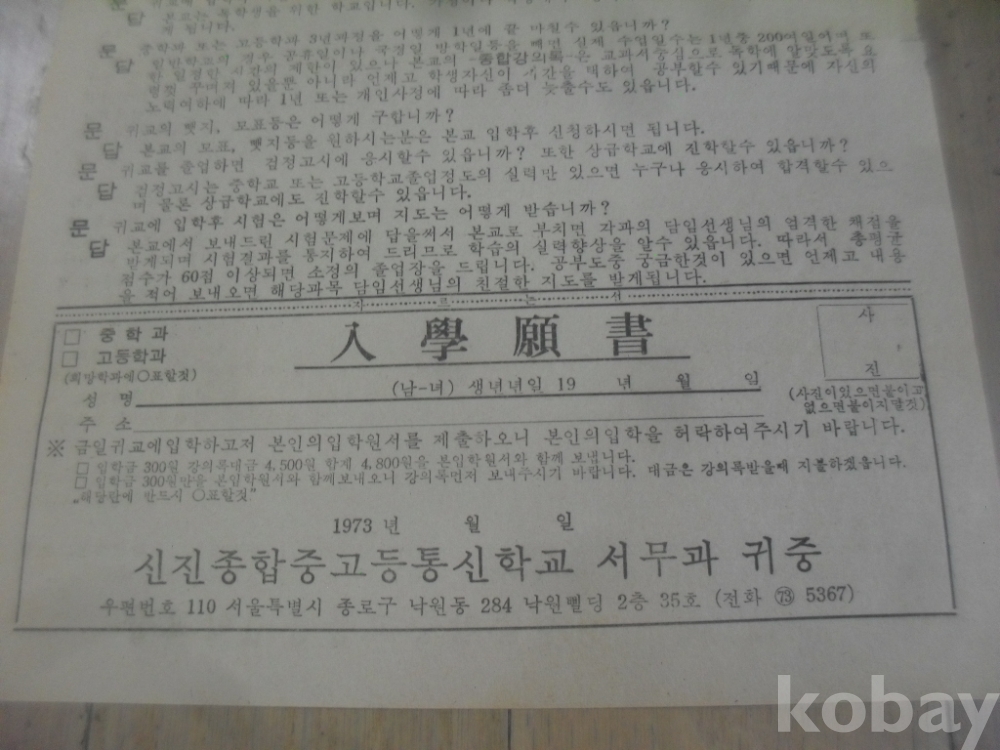 문 중학과 또는 고등학과 3년과정을 어떻게 1년에 끝 마칠수 있읍니까?
답 일반학교의 경우 공휴일이나 국경일 방학일등을 빼면 실제 수업일수는 1년중 200여일이며 또
한 일정한 시간의 제한이 있으나 본교의 종합강의록은 교과서중심으로 독학에 알맞도록 요
령껏 꾸며져 있을뿐 아니라 언제고 학생자신이 시간을 택하여 공부할수 있기때문에 자신의
노력여하에 따라 1년 또는 개인사정에 따라 좀더 늦출수도 있읍니다.
문 귀교의 뺏지, 모표등은 어떻게 구합니까?
답 본교의 모표, 뺏지등을 원하시는분은 본교 입학후 신청하시면 됩니다.
문 귀교를 졸업하면 검정고시에 응시할수 있읍니까? 또한 상급학교에 진학할수 있읍니까?
답 검정고시는 중학교 또는 고등학교졸업정도의 실력만 있으면 누구나 응시하여 합격할수 있으
며 물론 상급학교에도 진학할수 있읍니다.
문 귀교에 입학후 시험은 어떻게보며 지도는 어떻게 받습니까?
답 본교에서 보내드린 시험문제에 답을써서 본교로 부치면 각과의 담임선생님의 엄격한 채점을
받게되며 시험결과를 통지하여 드리므로 학습의 실력향상을 알수 있읍니다. 따라서 총평균
점수가 60점 이상되면 소정의 졸업장을 드립니다. 공부도중 궁금한것이 있으면 언제고 내용
을 적어 보내오면 해당과목 담임선생님의 친절한 지도를 받게됩니다.
자 르 는 선
□ 중 학 과
□ 고등학과
(희망학과에○표할것)
入 學 願 書
사
진
(사진이있으면붙이고
없으면붙이지말것)
성 명 (남-녀) 생년년일 19 년 월 일
주 소
※ 금일귀교에입학하고저 본인의입학원서를 제출하오니 본인의입학을 허락하여주시기 바랍니다.
□ 입학금 300원 강의록대금 4,500원 합계 4,800원을 본입학원서와 함께 보냅니다.
□ 입학금 300원만을 본입학원서와 함께보내오니 강의록먼저 보내주시기 바랍니다. 대금은 강의록받을때 지불하겠읍니다.
„해당란에 반드시 ○표할것"
1973년 월 일
신진종합중고등통신학교 서무과 귀중
우편번호 110 서울특별시 종로구 낙원동 284 낙원삘딩 2층 35호 (전화 ㉆ 5367)
kobay